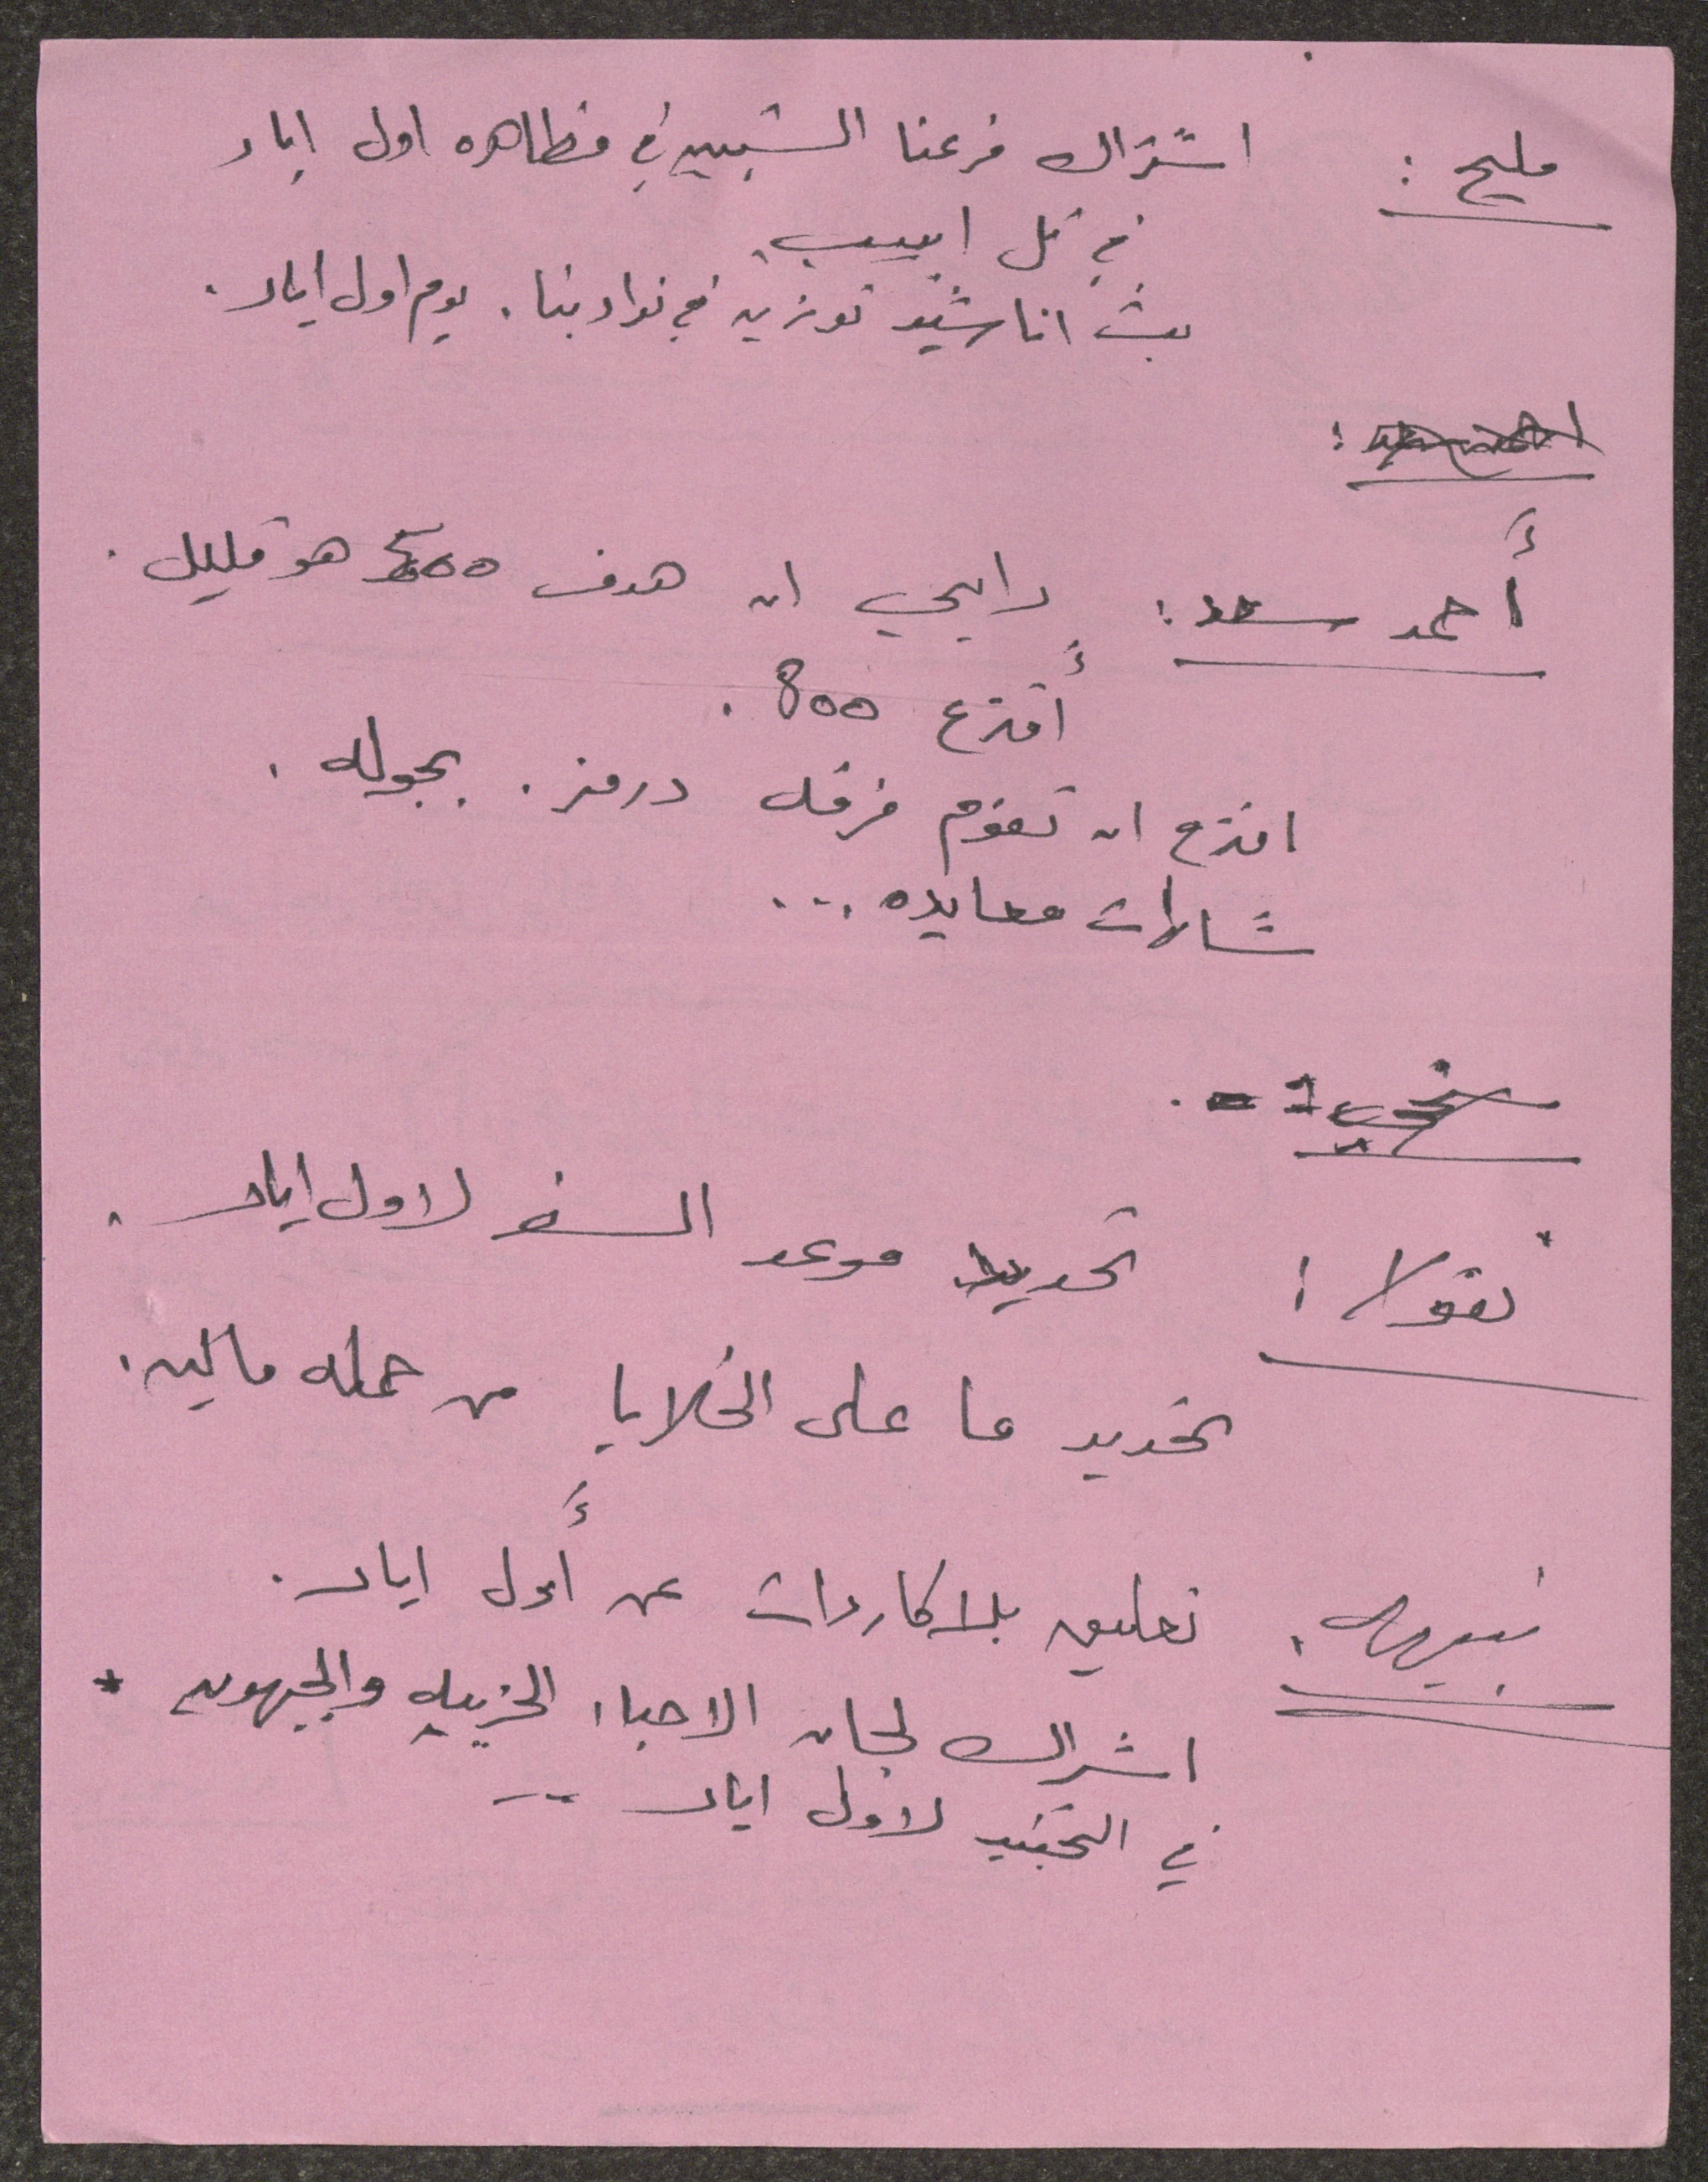 مليح : اشتراك فرعنا الشبيبه في مظاهره اول ايار
في تل ابيب
بث اناشيد ثوريه في نوادينا . يوم اول ايار .
أحمد سعد : رايي ان هدف 500 هو قليل .
أقترح 800 .
اقترح ان تقوم فرقه درمز . بجوله .
شارات معايده ...
نقولا : تحديد موعد السفر لاول ايار .
تحديد ما على الخلايا من حمله ماليه .
نبيه : تعليق بلاكاردات عن أول ايار .
اشراك لجان الاحياء الحزبيه والجبهويه *
في التجنيد لاول ايار --